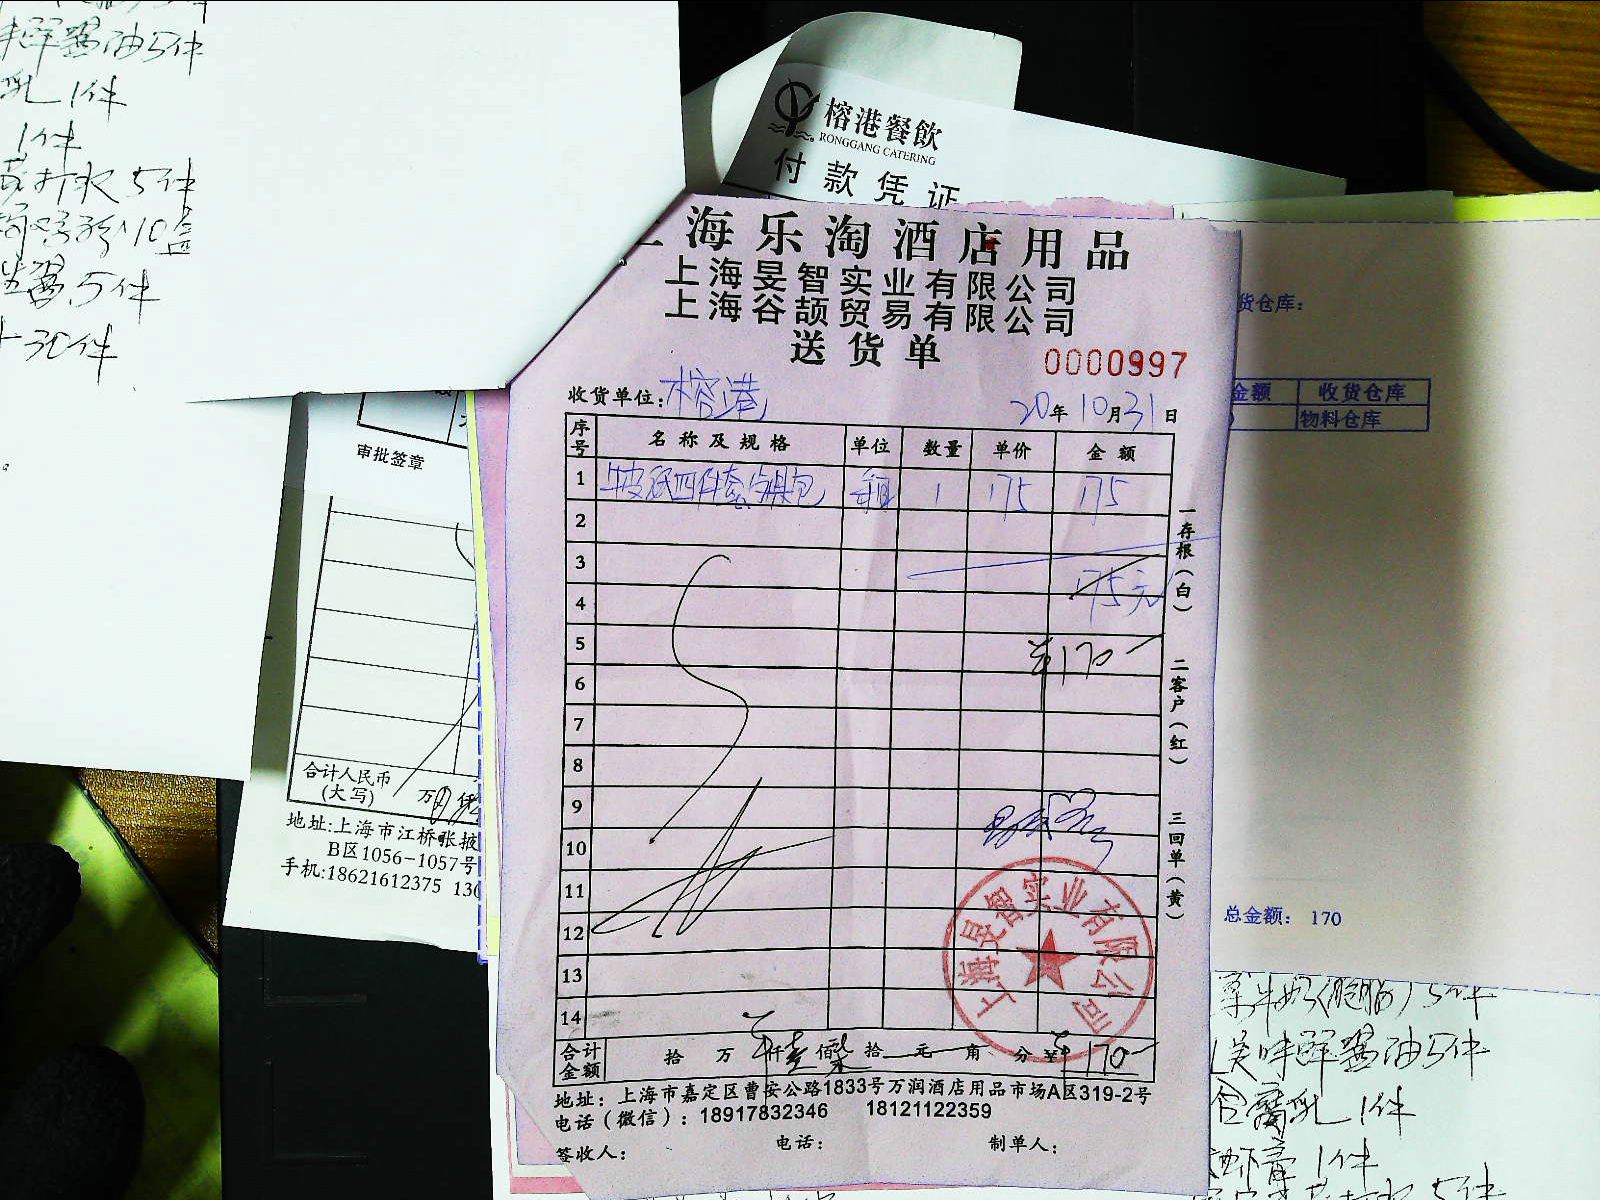 鲜酱油5件
乳 1件
1件
5件
10盒
酱 5件
30件
榕港餐飲
RONGGANG CATERING
付款凭证
海乐淘酒店用品
上海旻智实业有限公司
上海谷颉贸易有限公司
送货单
0000997
收货单位：榕港
20年10月31日
序号 名称及规格 单位 数量 单价 金额
1 牛皮纸四件套 箱 1 175 175
2
3
175元
4
5
¥170-
6
7
8
9
10
11
12
13
14
上海旻智实业有限公司
合计金额 拾 万 仟 壹 佰 柒 拾 元 角 分 ¥170-
地址：上海市嘉定区曹安公路1833号万润酒店用品市场A区319-2号
电话（微信）：18917832346 18121122359
签收人： 电话： 制单人：
一存根（白）
二客户（红）
三回单（黄）
货仓库：
金额 收货仓库
物料仓库
总金额： 170
审批签章
合计人民币
（大写） 万
地址：上海市江桥张掖
B区1056-1057号
手机：18621612375 130
5件
味鲜酱油5件
腐乳 1件
虾膏 1件
5件